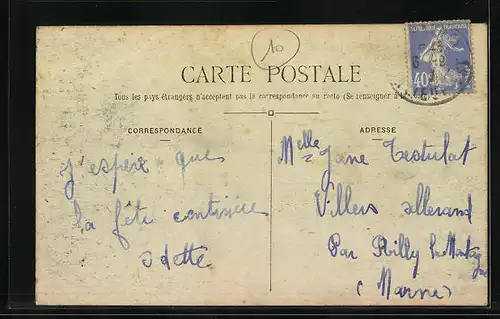 10
REPUBLIQUE FRANCAISE
40c
CARTE POSTALE
Tous les pays étrangers n'acceptent pas la correspondance au recto (Se renseigner à
CORRESPONDANCE
J'espère que
la fête continue
Odette
ADRESSE
Melle Jane Testulat
Villers allerand
Par Rilly la Montagne
(Marne)